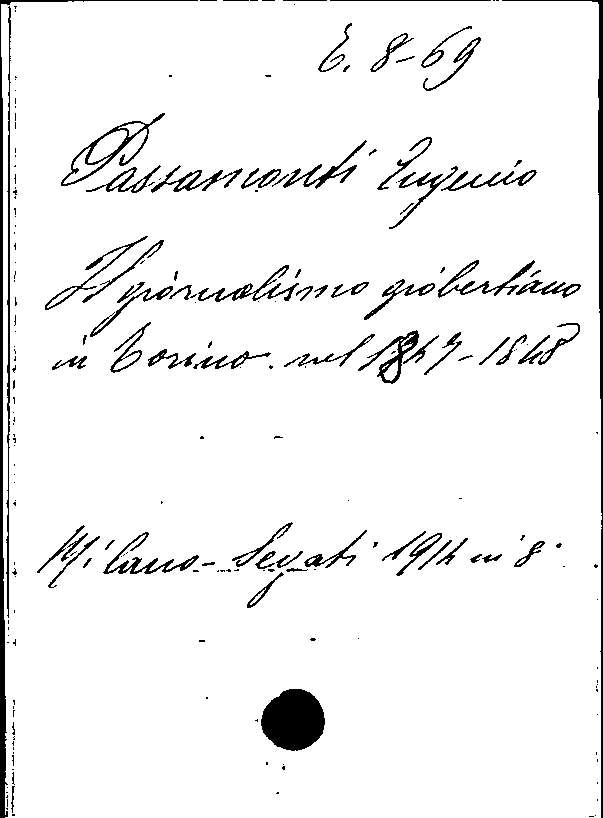 E. 8-69
Passamonti Eugenio
Il giornalismo giobertiano
in Torino nel 1847-1848
Milano - Segati 1914 in 8°